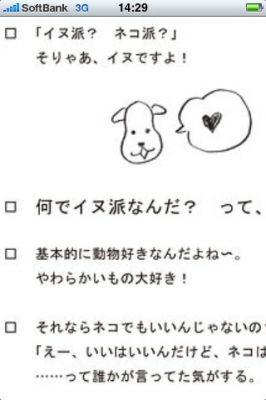 SoftBank 3G 14:29
□ 「イヌ派？　ネコ派？」
そりゃあ、イヌですよ！
□ 何でイヌ派なんだ？　って、
□ 基本的に動物好きなんだよね〜。
やわらかいもの大好き！
□ それならネコでもいいんじゃないの？
「えー、いいはいいんだけど、ネコは
……って誰かが言ってた気がする。